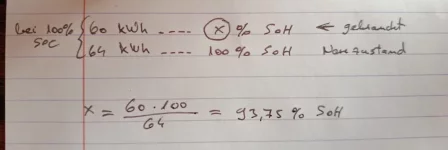 bei 100% SOC { 60 kWh .... x % SoH ← gebraucht
64 kWh .... 100 % SoH Neuzustand
x = 60 · 100 / 64 = 93,75 % SoH